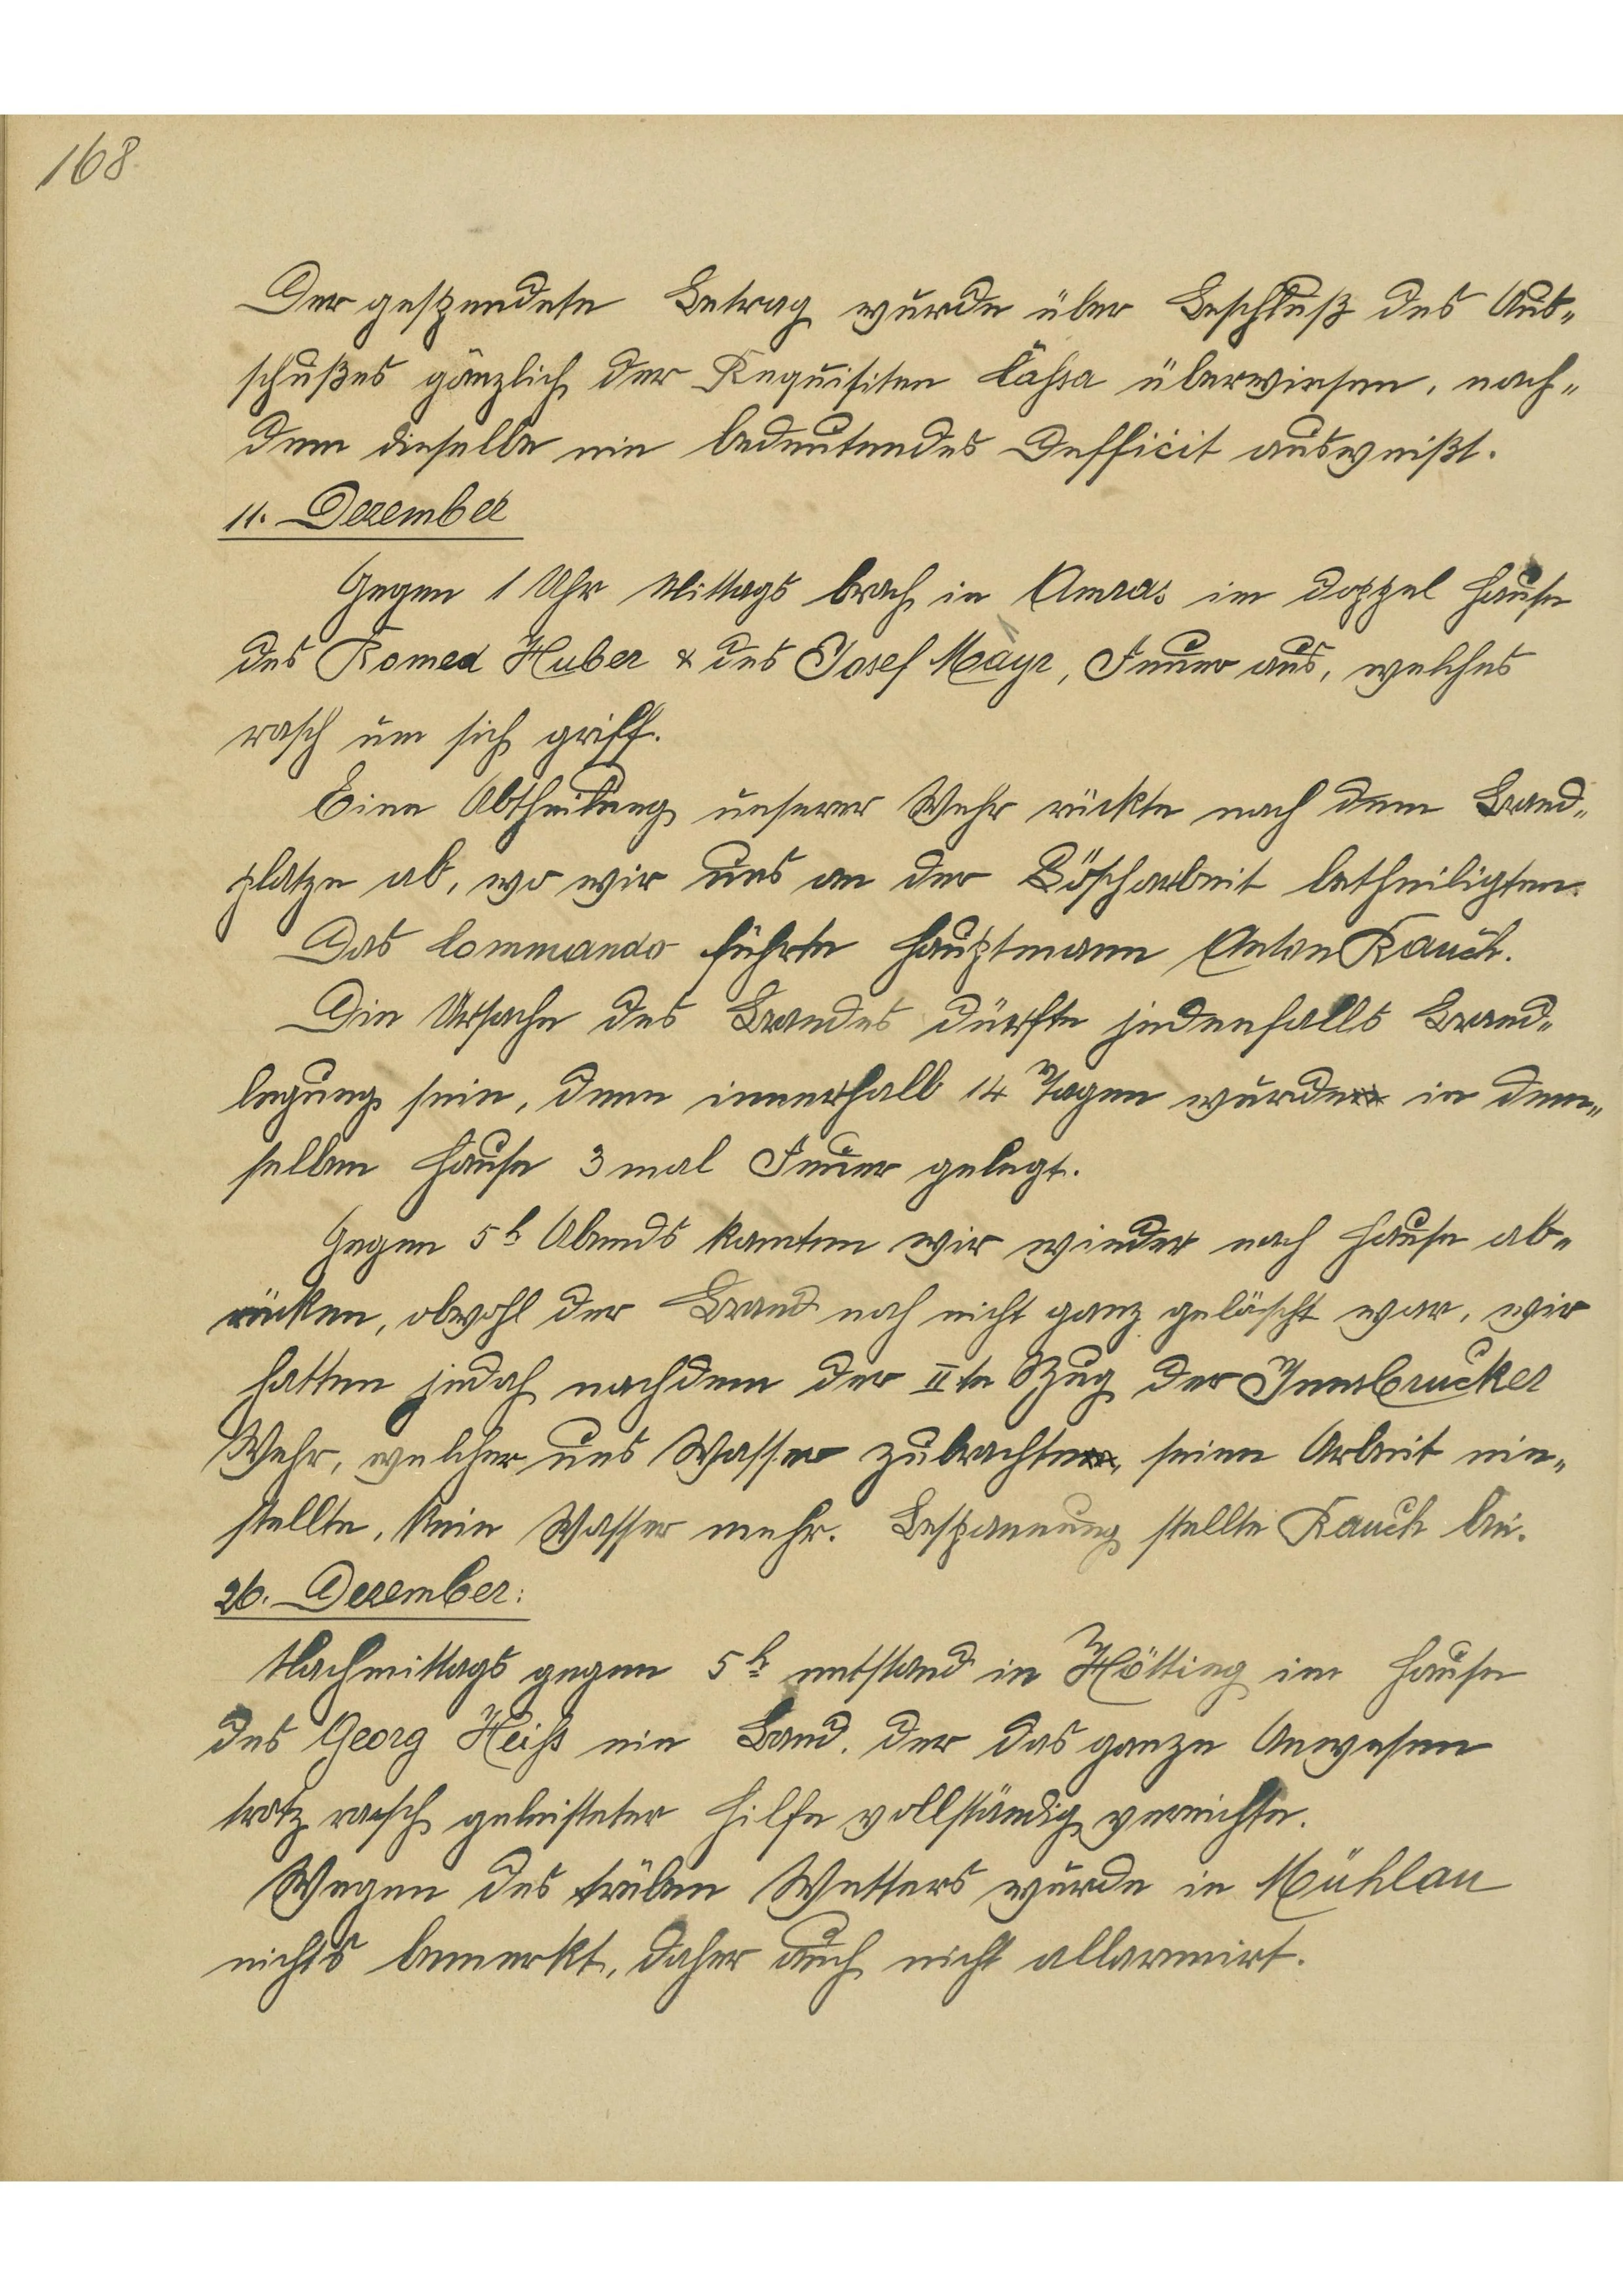 168.
Der gespendete Betrag wurde über Beschluß des Aus-
schußes gänzlich der Requisiten Cassa überwiesen, nach-
dem dieselbe ein bedeutendes Defficit ausweißt.
11. Dezember
Gegen 1 Uhr Mittags brach in Amras im Doppel Hause
des Romed Huber & des Josef Mayr, Feuer aus, welches
rasch um sich griff.
Eine Abtheilung unserer Wehr rückte nach dem Brand-
platze ab, wo wir uns an der Löscharbeit betheiligten.
Das Commando führte Hauptmann Anton Rauch.
Die Ursache des Brandes dürfte jedenfalls Brand-
legung sein, denn innerhalb 14 Tagen wurde in dem-
selben Hause 3 mal Feuer gelegt.
Gegen 5h Abends konnten wir wieder nach Hause ab-
rücken, obwohl der Brand noch nicht ganz gelöscht war, wir
hatten jedoch nachdem der II te Zug der Innsbrucker
Wehr, welcher uns Wasser zubrachte, seine Arbeit ein-
stellte, kein Wasser mehr. Bespannung stellte Rauch bei.
26. Dezember:
Nachmittags gegen 5h entstand in Hötting im Hause
des Georg Heiss ein Band, der das ganze Anwesen
trotz rasch geleisteter Hilfe vollständig vernichte.
Wegen des trüben Wetters wurde in Mühlau
nichts bemerkt, daher auch nicht allarmirt.